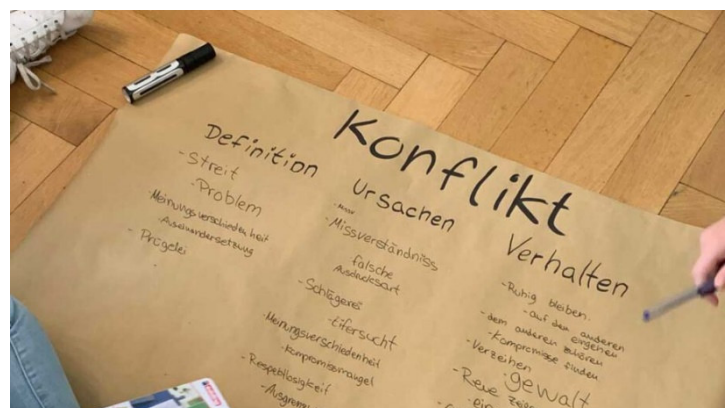 Konflikt
Definition
- Streit
- Problem
- Meinungsverschiedenheit
- Auseinandersetzung
- Prügelei
Ursachen
- Missverständniss
falsche
Ausdrucksart
- Schlägerei
- Eifersucht
- Meinungsverschiedenheit
- Kompromissmangel
- Respektlosigkeit
Verhalten
- Ruhig bleiben.
- auf den anderen
eingehen
- dem anderen zuhören
- Kompromisse finden
- Verzeihen
- gewalt
- Reue